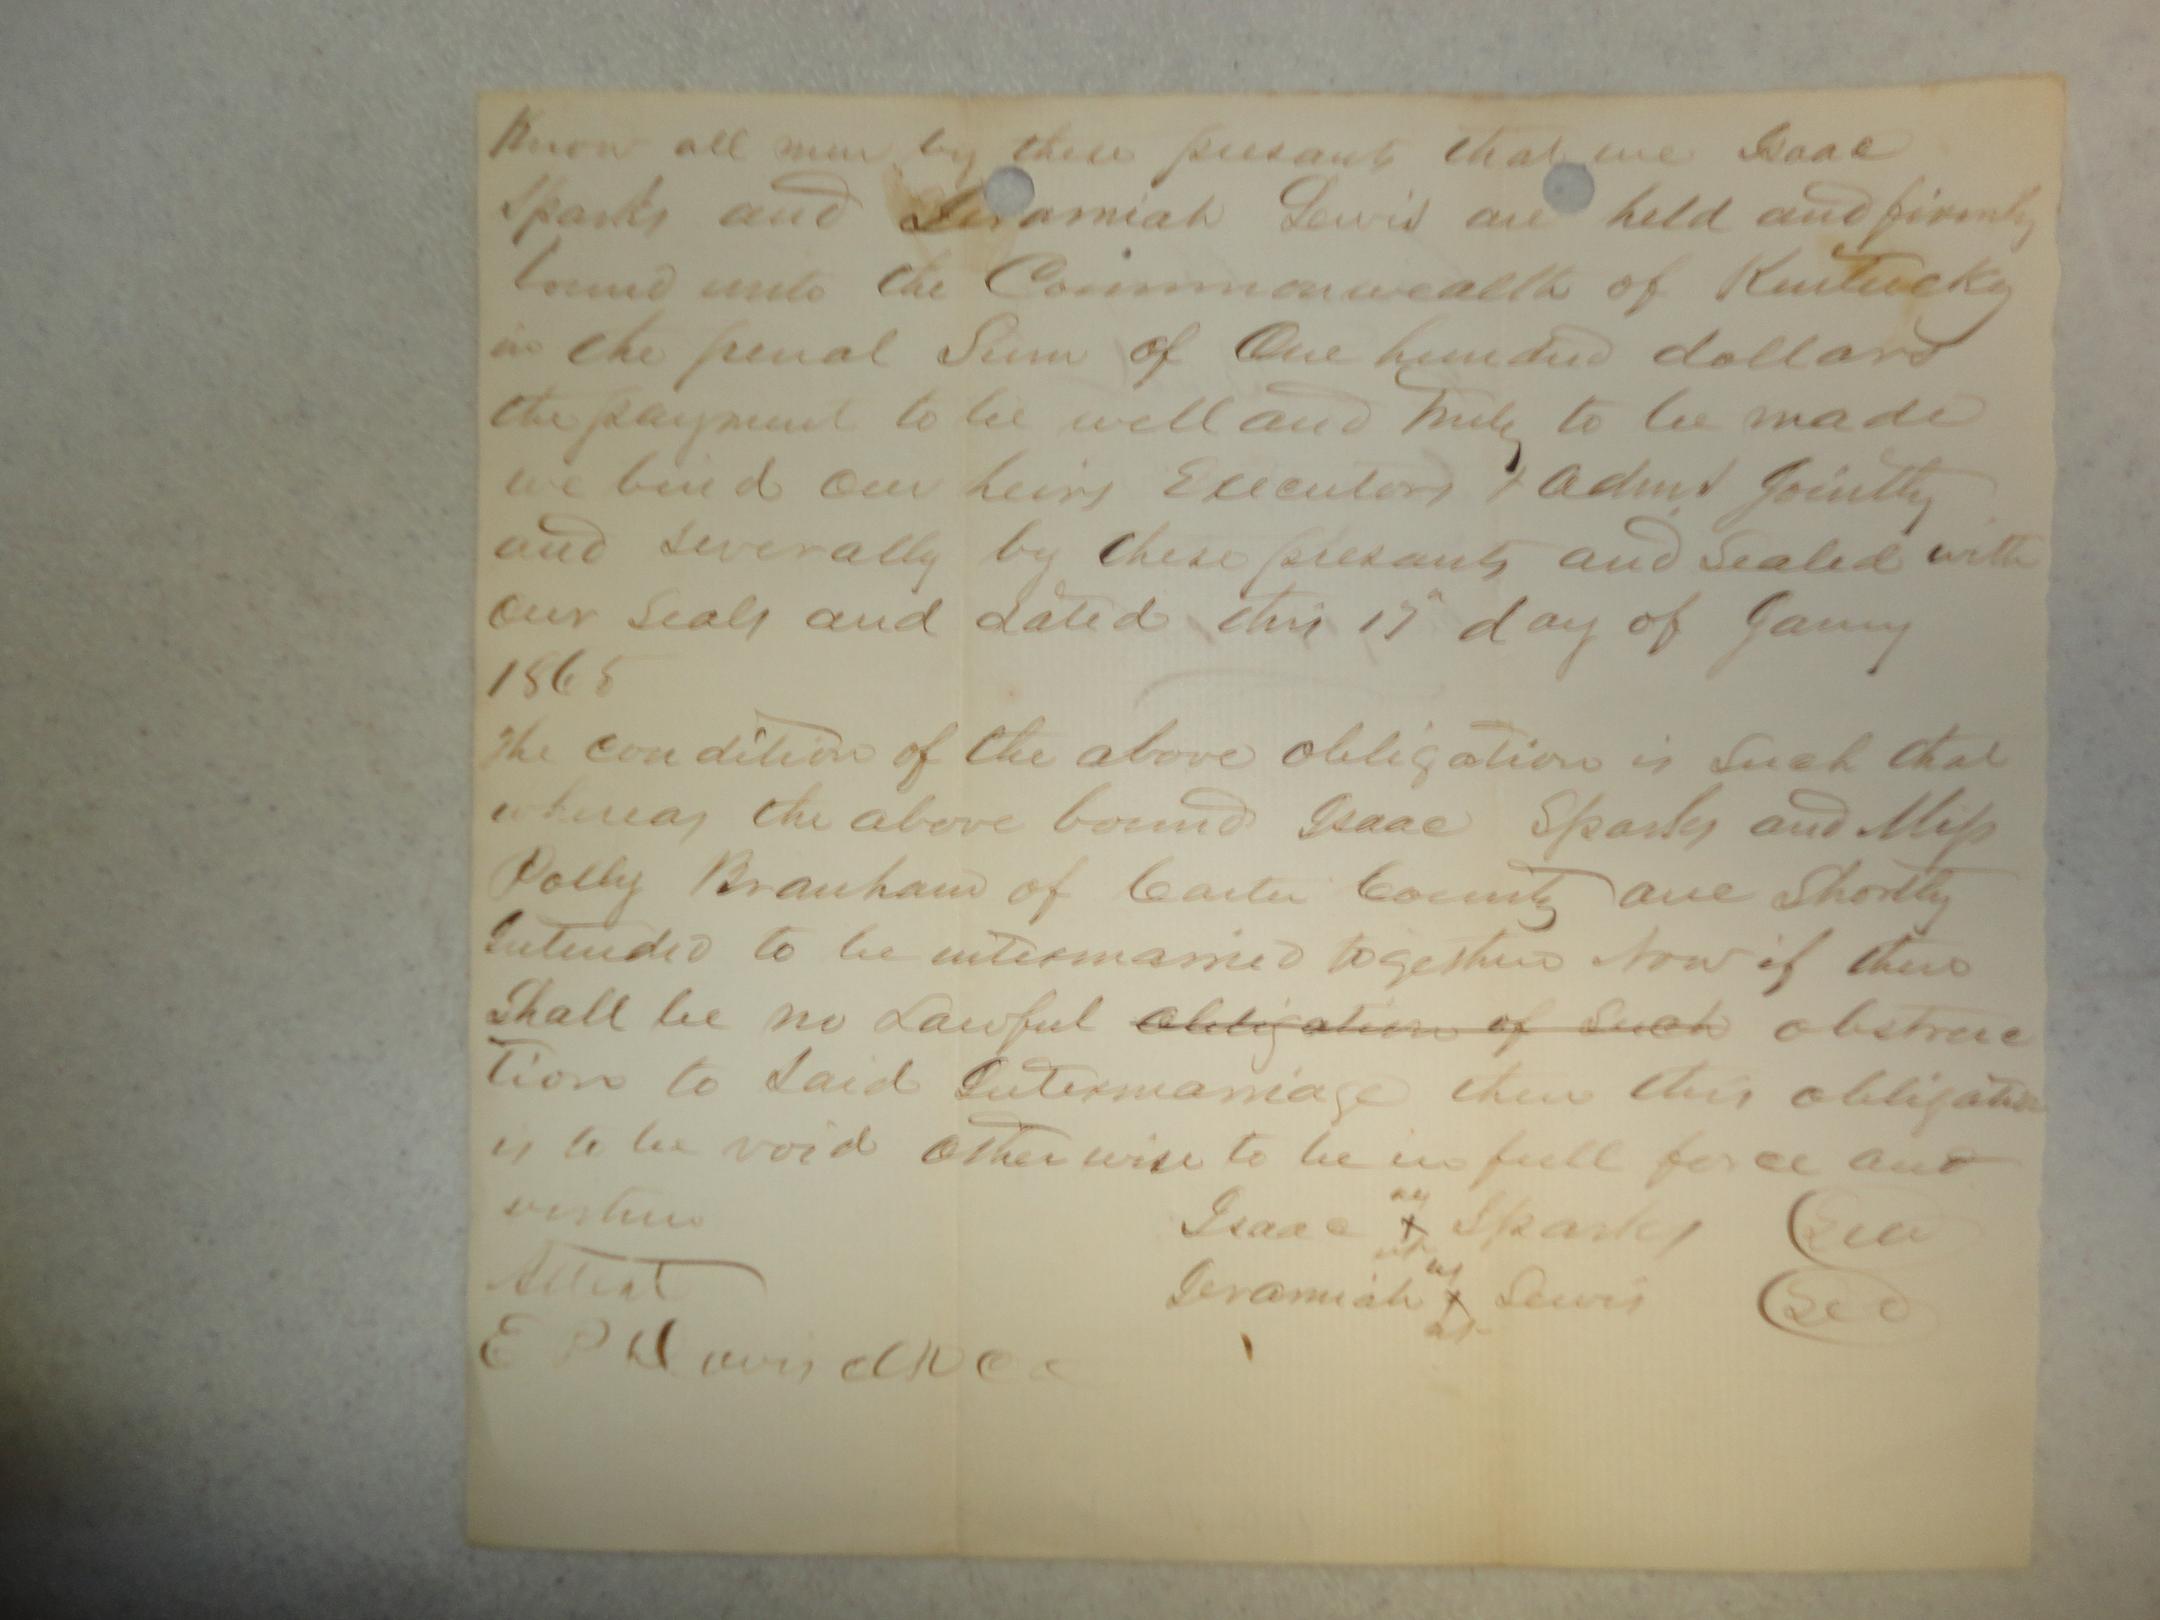 Know all men by these presants that we Isaac
Sparks and Jeramiah Lewis are held and firmly
bound unto the Commonwealth of Kentucky
in the penal Sum of One hundred dollars
the payment to be well and Truly to be made
we bind our heirs Executors & Adms Jointly
and severally by these presants and Sealed with
our Seals and dated this day of Janry
1865
The condition of the above obligation is Such that
whereas the above bound Isaac Sparks and Miss
Polly Branham of Carter County are Shortly
Intended to be intermarried together Now if there
Shall be no Lawful obligation of Such obstruc
tion to Said Intermarriage then this obligation
is to be void otherwise to be in full force and
vertue Isaac X Sparks
Attest Jeramiah X Lewis
E P Davis